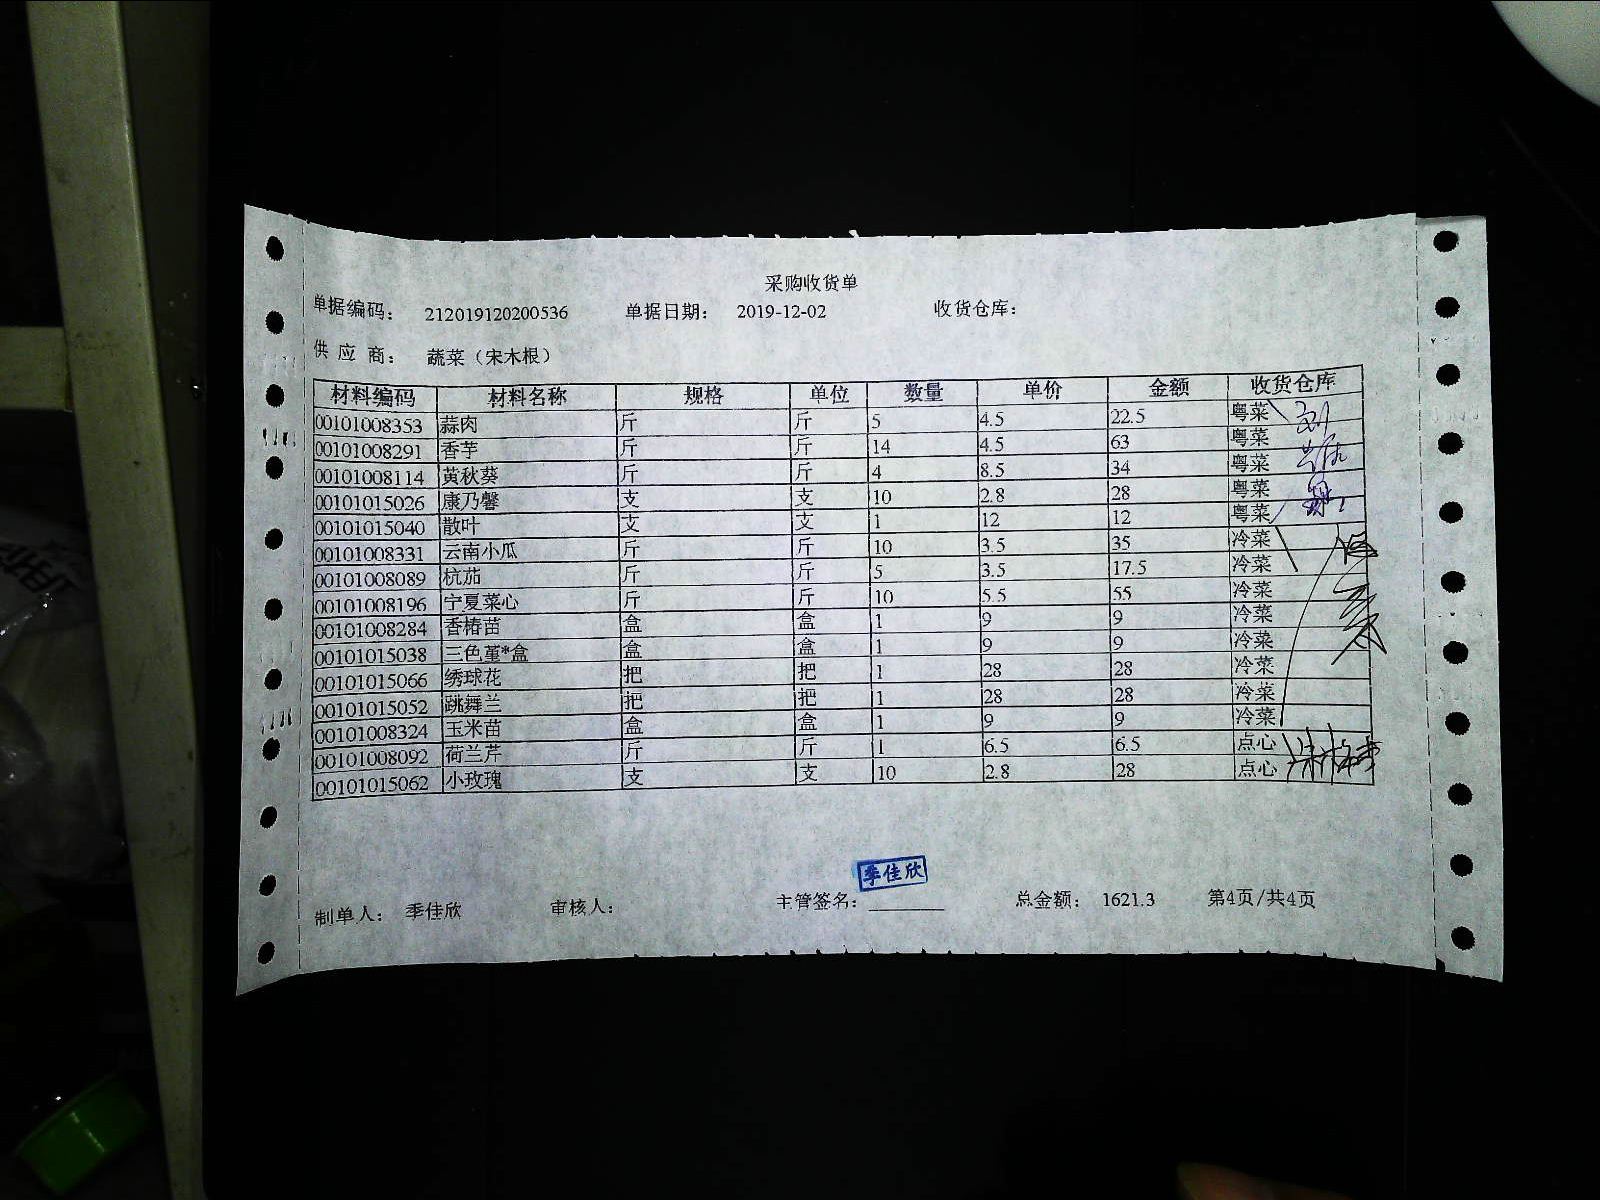 采购收货单
单据编码： 212019120200536 单据日期： 2019-12-02 收货仓库：
供 应 商： 蔬菜（宋木根）
材料编码 材料名称 规格 单位 数量 单价 金额 收货仓库
00101008353 蒜肉 斤 斤 5 4.5 22.5 粤菜
00101008291 香芋 斤 斤 14 4.5 63 粤菜
00101008114 黄秋葵 斤 斤 4 8.5 34 粤菜
00101015026 康乃馨 支 支 10 2.8 28 粤菜
00101015040 散叶 支 支 1 12 12 粤菜
00101008331 云南小瓜 斤 斤 10 3.5 35 冷菜
00101008089 杭茄 斤 斤 5 3.5 17.5 冷菜
00101008196 宁夏菜心 斤 斤 10 5.5 55 冷菜
00101008284 香椿苗 盒 盒 1 9 9 冷菜
00101015038 三色堇*盒 盒 盒 1 9 9 冷菜
00101015066 绣球花 把 把 1 28 28 冷菜
00101015052 跳舞兰 把 把 1 28 28 冷菜
00101008324 玉米苗 盒 盒 1 9 9 冷菜
00101008092 荷兰芹 斤 斤 1 6.5 6.5 点心
00101015062 小玫瑰 支 支 10 2.8 28 点心
季佳欣
制单人： 季佳欣 审核人： 主管签名： 总金额： 1621.3 第4页/共4页